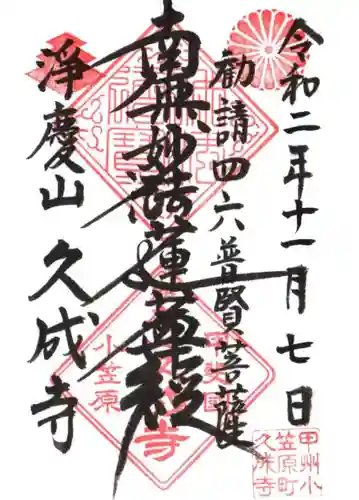 令和二年十一月七日
勧請四六普賢菩薩
南無妙法蓮華経
淨慶山 久成寺
小笠原
甲斐国
甲州小
笠原町
久成寺